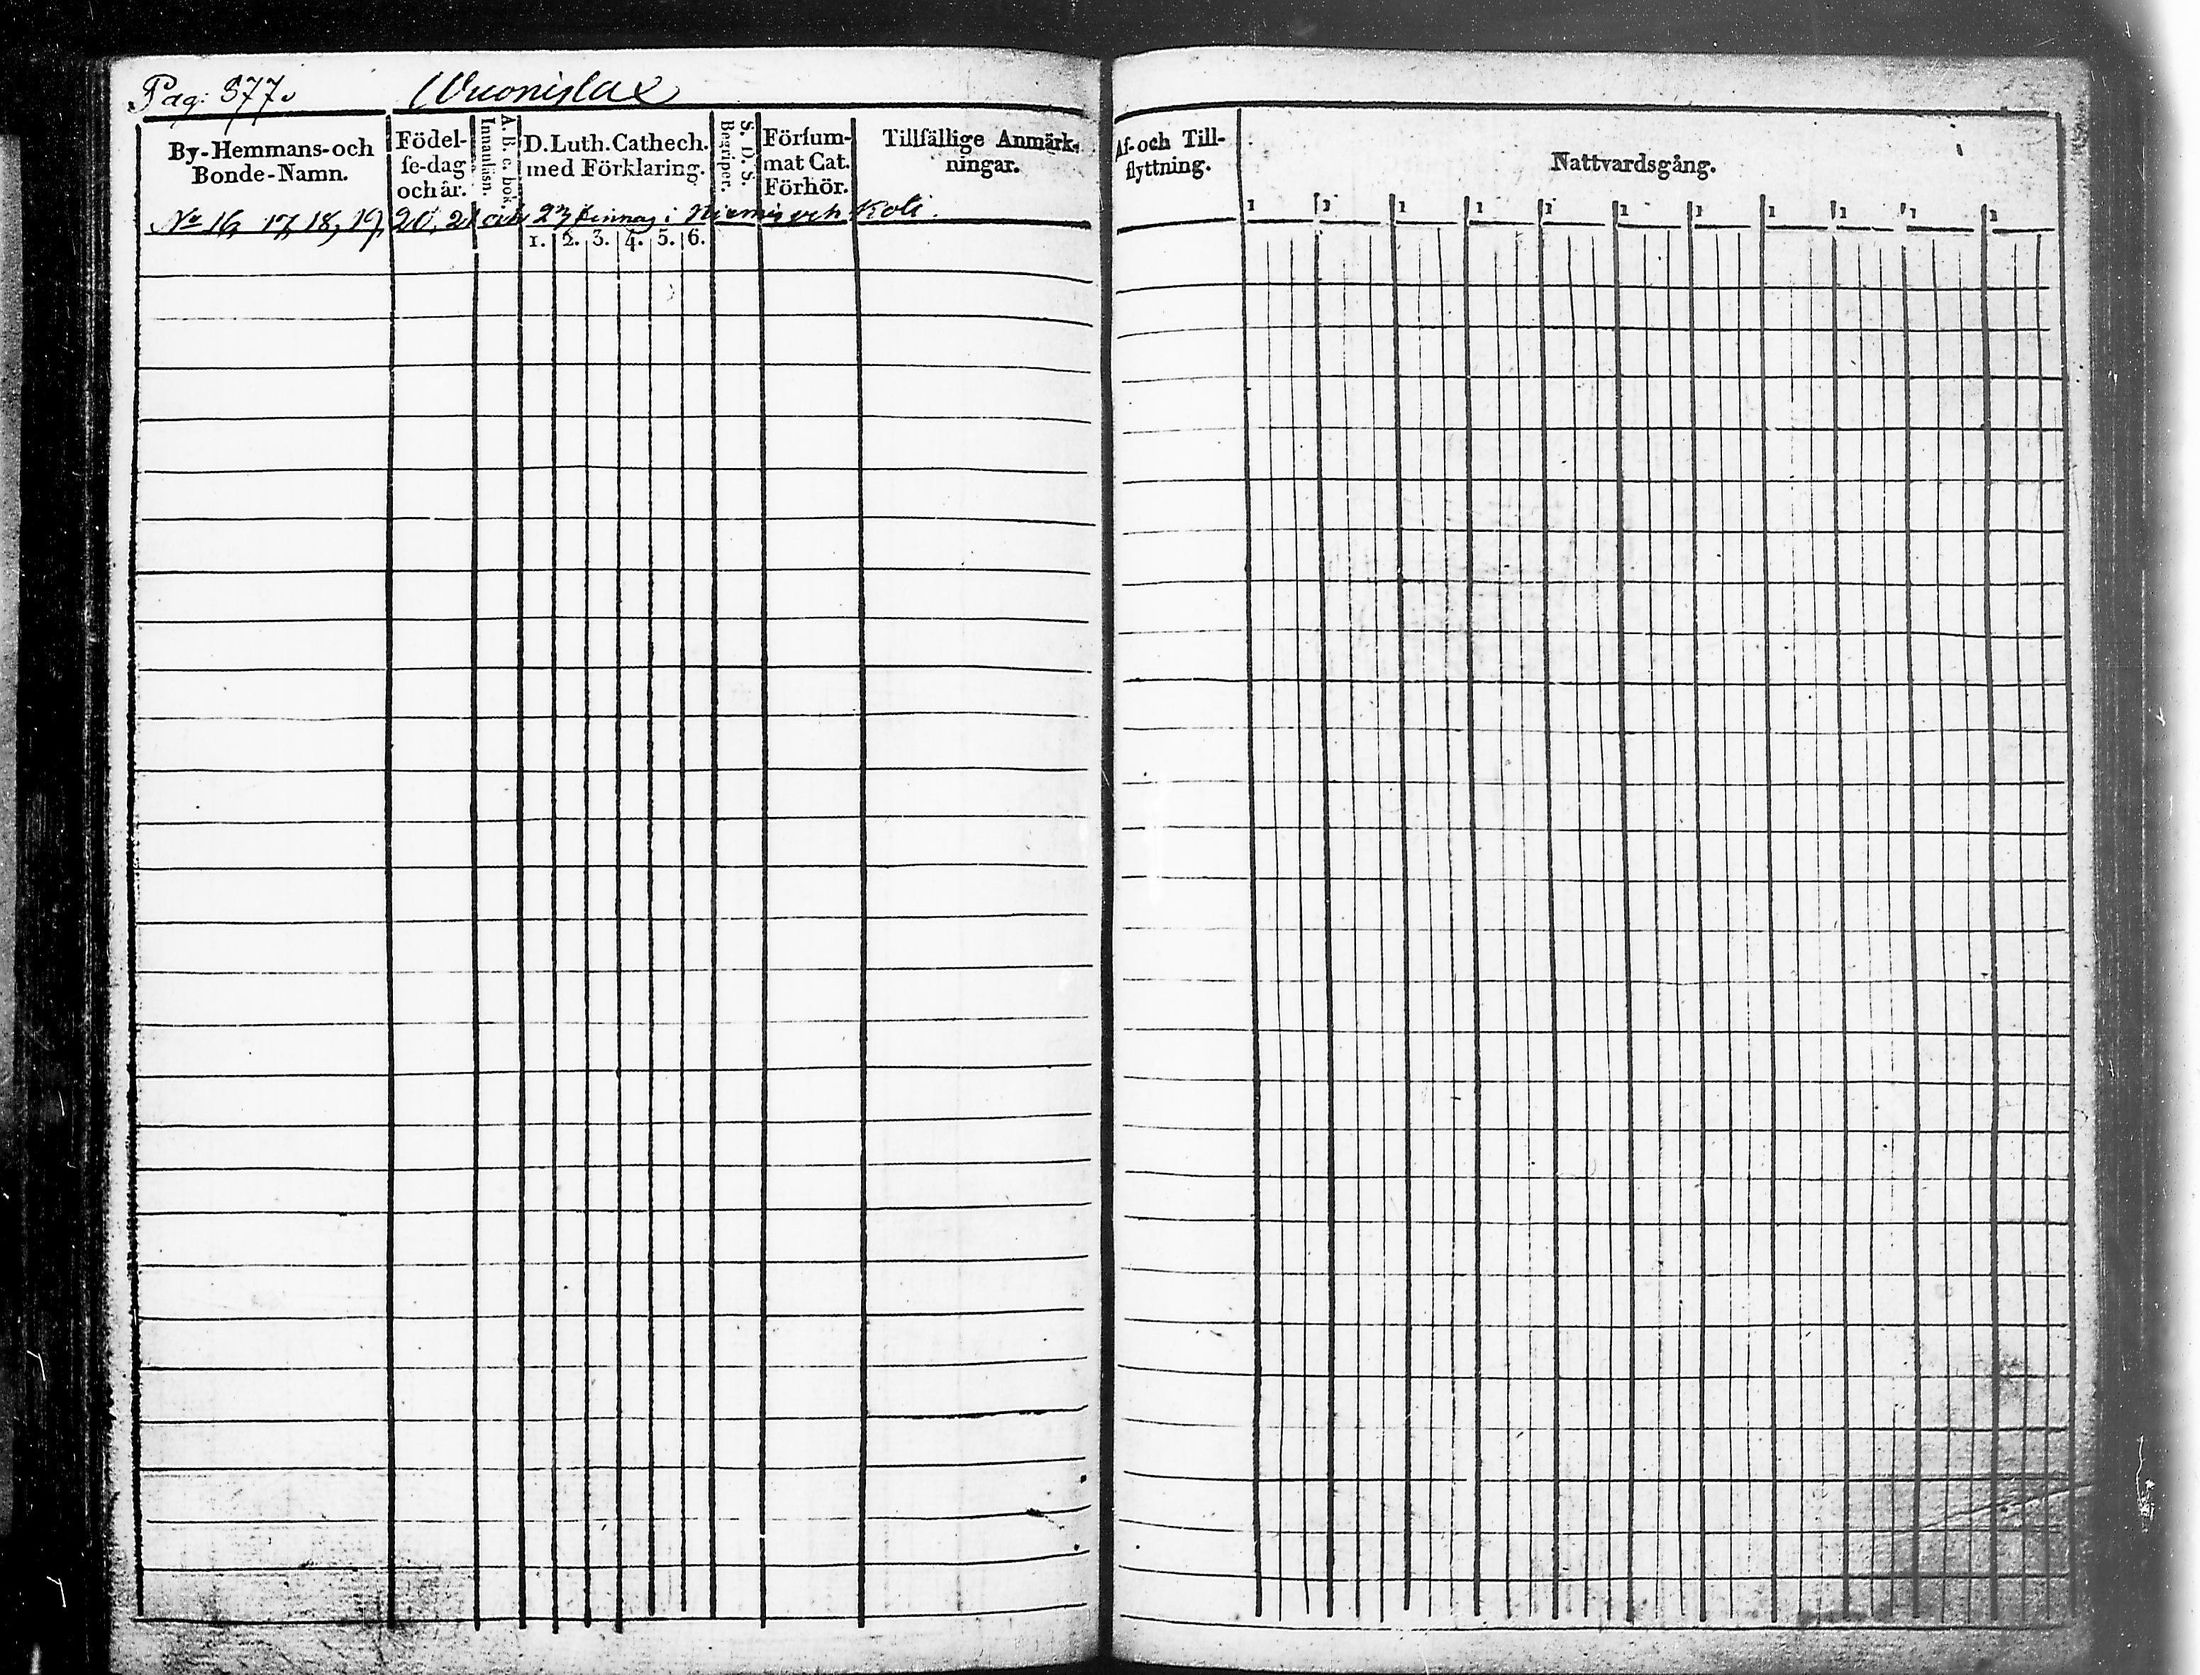 Pag: 377. Wuonislax
By-Hemmans-och
Bonde-Namn.
Födel-
se-dag
och år.
Innanläsn.
A. B. c. bok.
D. Luth. Cathech.
med Förklaring.
S. D. S.
Begriper.
Försum-
mat Cat.
Förhör.
Tillfällige Anmärk-
ningar.
No 16, 17, 18, 19, 20, 21 och 23 finnas i Niemis och Koli.
1. 2. 3. 4. 5. 6.
Af- och Till-
flyttning.
Nattvardsgång.
1 1 1 1 1 1 1 1 1 1 1